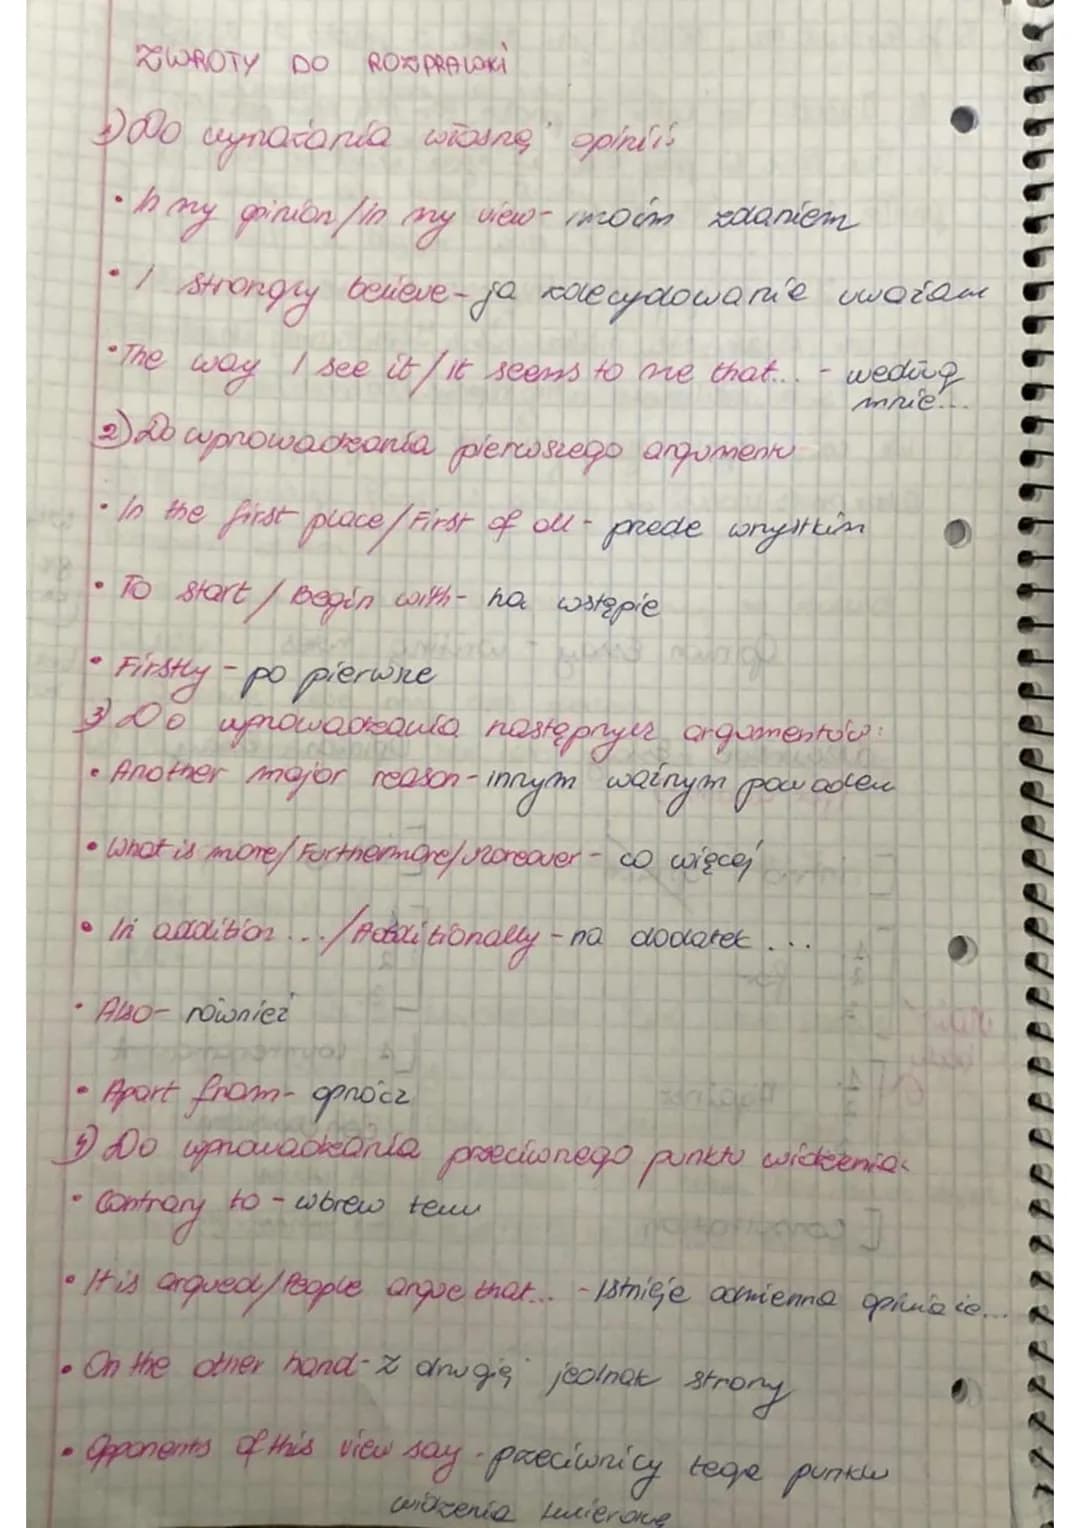 ZWROTY DO ROZPRAWKI
1) Do wyrażania własnej opinii:
• In my opinion/in my view - moim zdaniem
• I strongly believe - ja zdecydowanie uważam
• The way I see it/It seems to me that... - według
mnie...
2) Do wprowadzania pierwszego argumentu
• In the first place/First of all - przede wszystkim
• To start/Begin with - na wstępie
• Firstly - po pierwsze
3) Do wprowadzania następnych argumentów:
• Another major reason - innym ważnym powodem
• What is more/Furthermore/Moreover - co więcej
• In addition .../Additionally - na dodatek ...
• Also - również
• Apart from - oprócz
4) Do wprowadzania przeciwnego punktu widzenia:
• Contrary to - wbrew temu
• It is argued/People argue that... - Istnieje odmienna opinia że...
• On the other hand - z drugiej jednak strony
• Opponents of this view say - przeciwnicy tego punktu
widzenia twierdzą